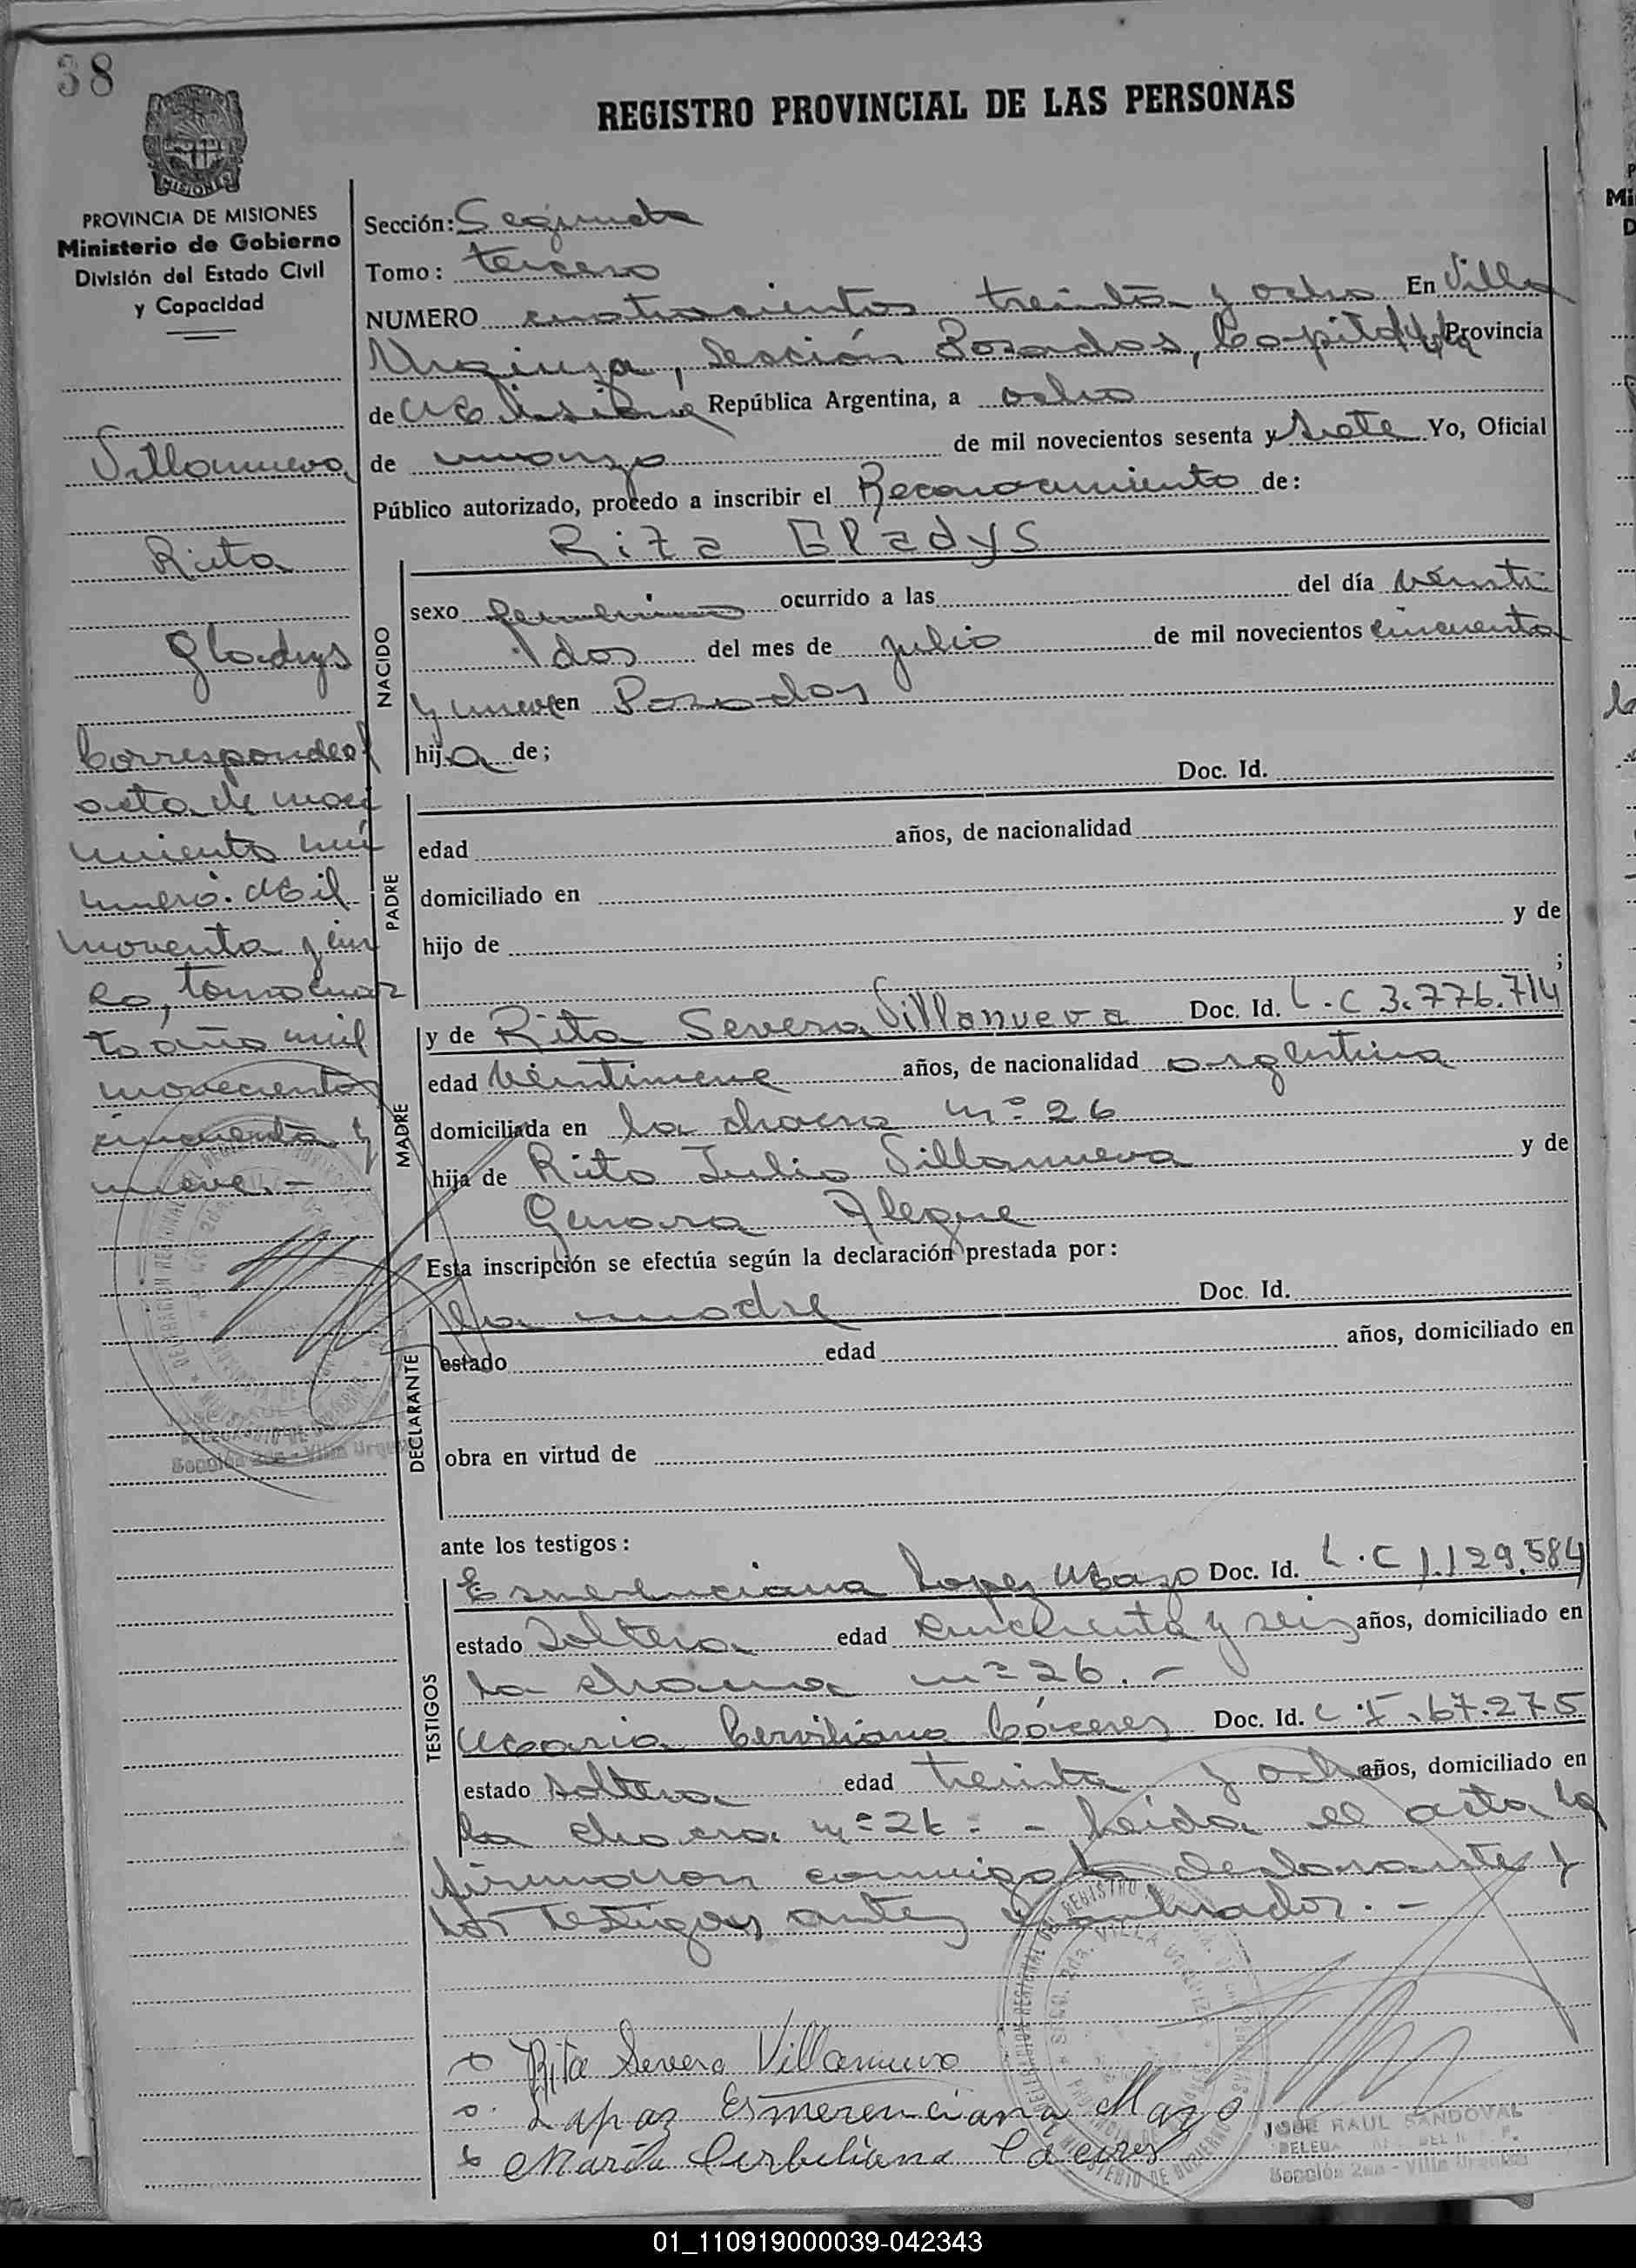 38
REGISTRO PROVINCIAL DE LAS PERSONAS
MISIONES
PROVINCIA DE MISIONES
Ministerio de Gobierno
División del Estado Civil
y Capacidad
Villanueva
Rita
Gladys
Corresponde al
acta de naci
miento nú
mero. Mil
noventa y cin
co, tomo cuar
to año mil
novecientos
cincuenta y
nueve. -
Sección: Segunda
Tomo: tercero
NUMERO cuatrocientos treinta y ocho En Villa
Urquiza, Sección Posadas, Capital de la Provincia
de Misiones República Argentina, a ocho
de marzo de mil novecientos sesenta y siete Yo, Oficial
Público autorizado, procedo a inscribir el Reconocimiento de:
Rita Gladys
NACIDO
sexo femenino ocurrido a las del día veinti
dos del mes de julio de mil novecientos cincuenta
y nueve en Posadas
hija de;
Doc. Id.
PADRE
edad años, de nacionalidad
domiciliado en
hijo de y de
;
MADRE
y de Rita Severa Villanueva Doc. Id. L.C 3.776.714
edad veintinueve años, de nacionalidad argentina
domiciliada en la chacra nº 26
hija de Rito Julio Villanueva y de
Genara Alegre
Esta inscripción se efectúa según la declaración prestada por:
DECLARANTE
la madre Doc. Id.
estado edad años, domiciliado en
obra en virtud de
ante los testigos:
TESTIGOS
Esmerenciana Lopez Mazo Doc. Id. L.C 1.129.584
estado soltera edad cincuenta y seis años, domiciliado en
la chacra nº 26. -
Maria Cerviliana Cáceres Doc. Id. C.I. 67.275
estado soltera edad treinta y ocho años, domiciliado en
la chacra nº 26. - Leida el acta la
firmaron conmigo la declarante y
los testigos antes nombrados. -
Rita Severa Villanueva
Lapaz Esmerenciana Mazo
María Cerbeliana Caceres
JOSE RAUL SANDOVAL
Sección 2da - Villa Urquiza
01_110919000039-042343